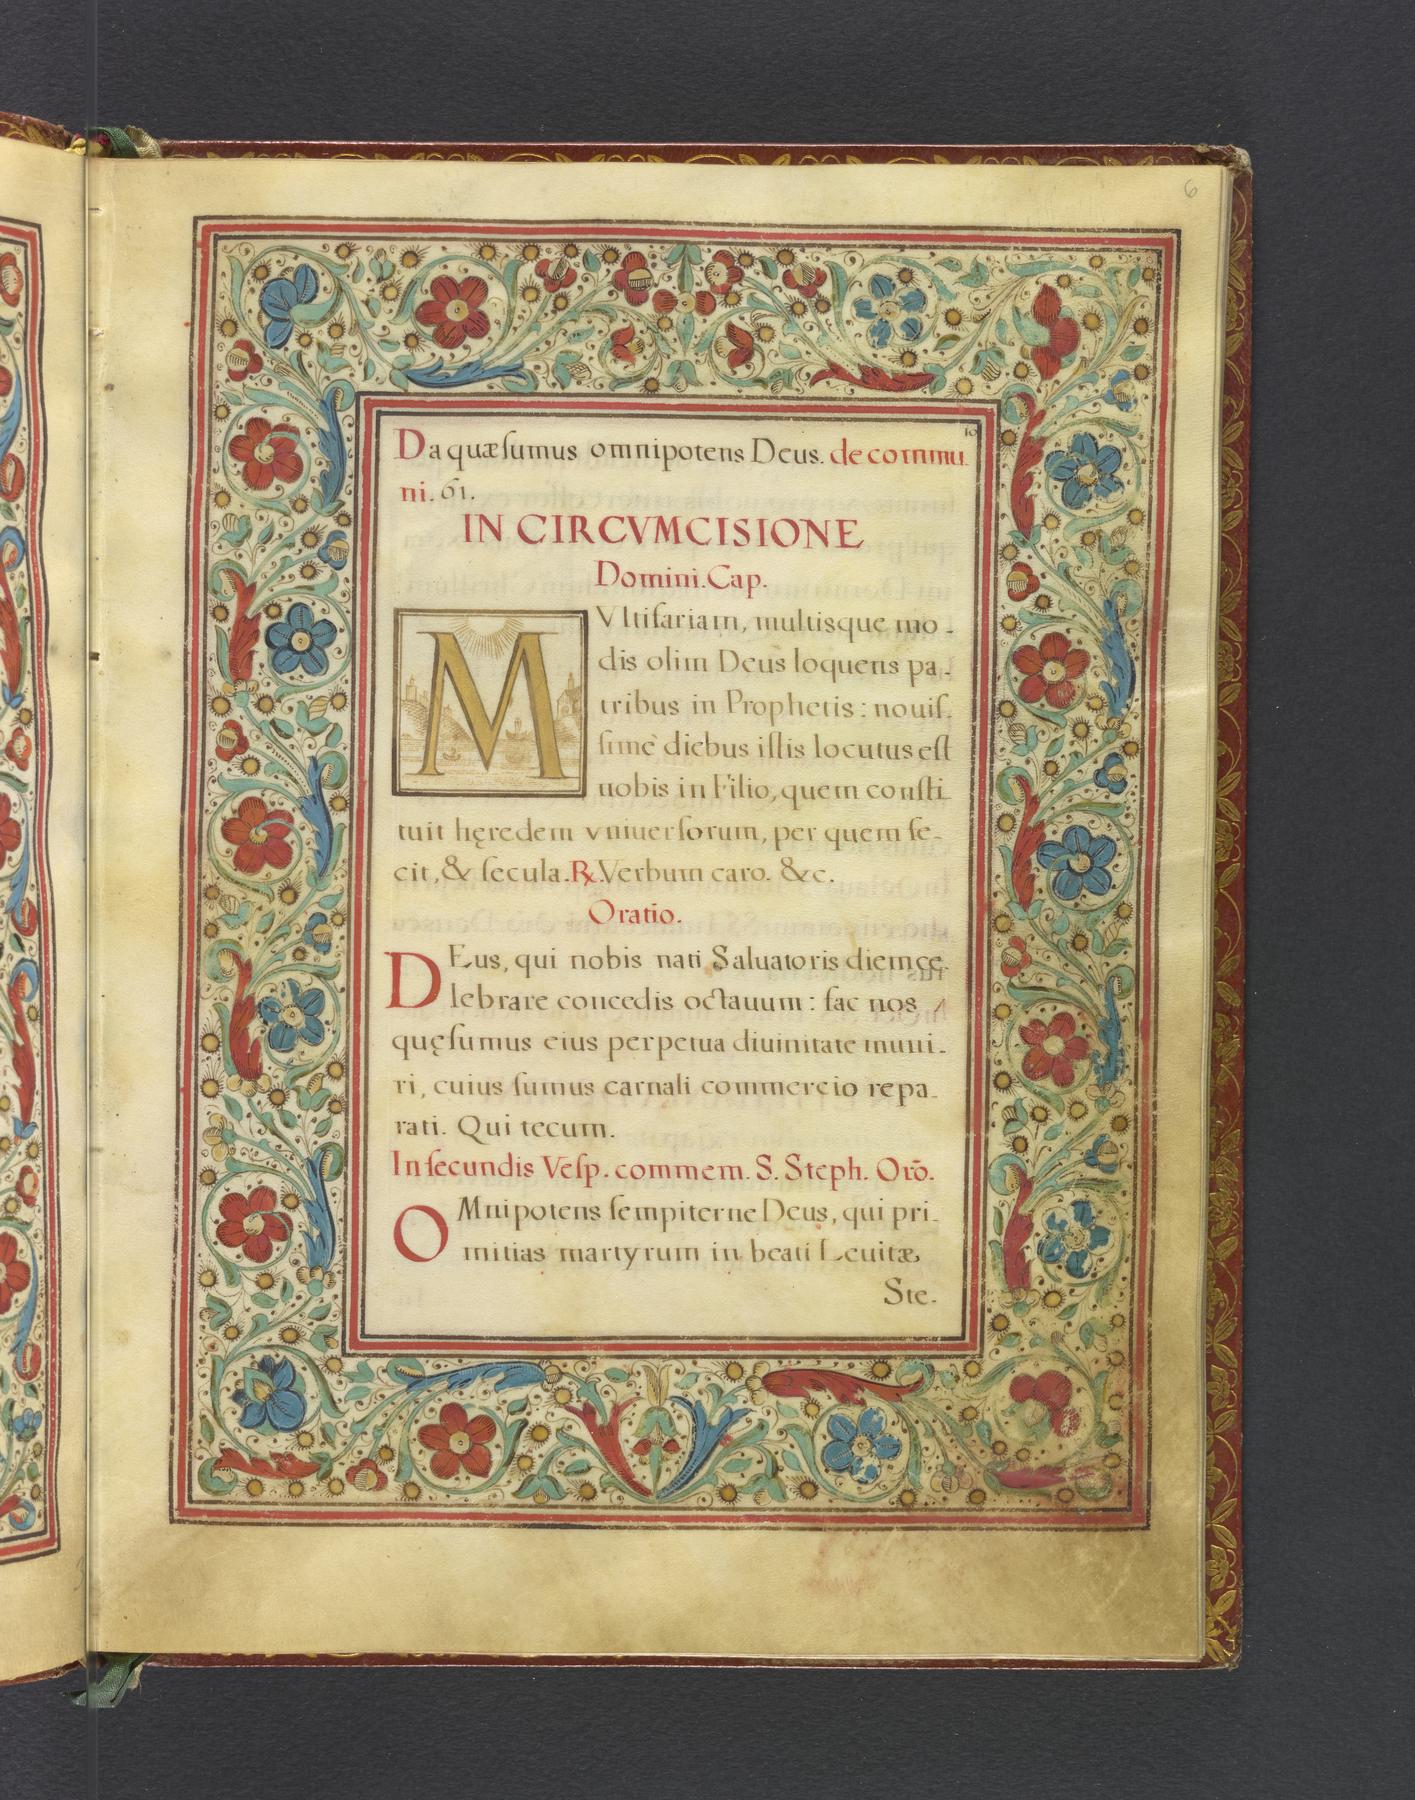 6
10
Da quæſumus omnipotens Deus. de commu
ni. 61.
IN CIRCVMCISIONE
Domini. Cap.
MVltifariam, multisque mo-
dis olim Deus loquens pa-
tribus in Prophetis: nouiſ-
ſimè diebus iſtis locutus eſt
nobis in Filio, quem conſti
tuit hęredem vniuerſorum, per quem fe-
cit, & ſecula. ℞. Verbum caro. &c.
Oratio.
DEus, qui nobis nati Saluatoris diem ce-
lebrare concedis octauum: fac nos
quęſumus eius perpetua diuinitate muni-
ri, cuius ſumus carnali commercio repa-
rati. Qui tecum.
In ſecundis Veſp. commem. S. Steph. Orō.
OMnipotens ſempiterne Deus, qui pri-
mitias martyrum in beati Leuitæ
Ste-